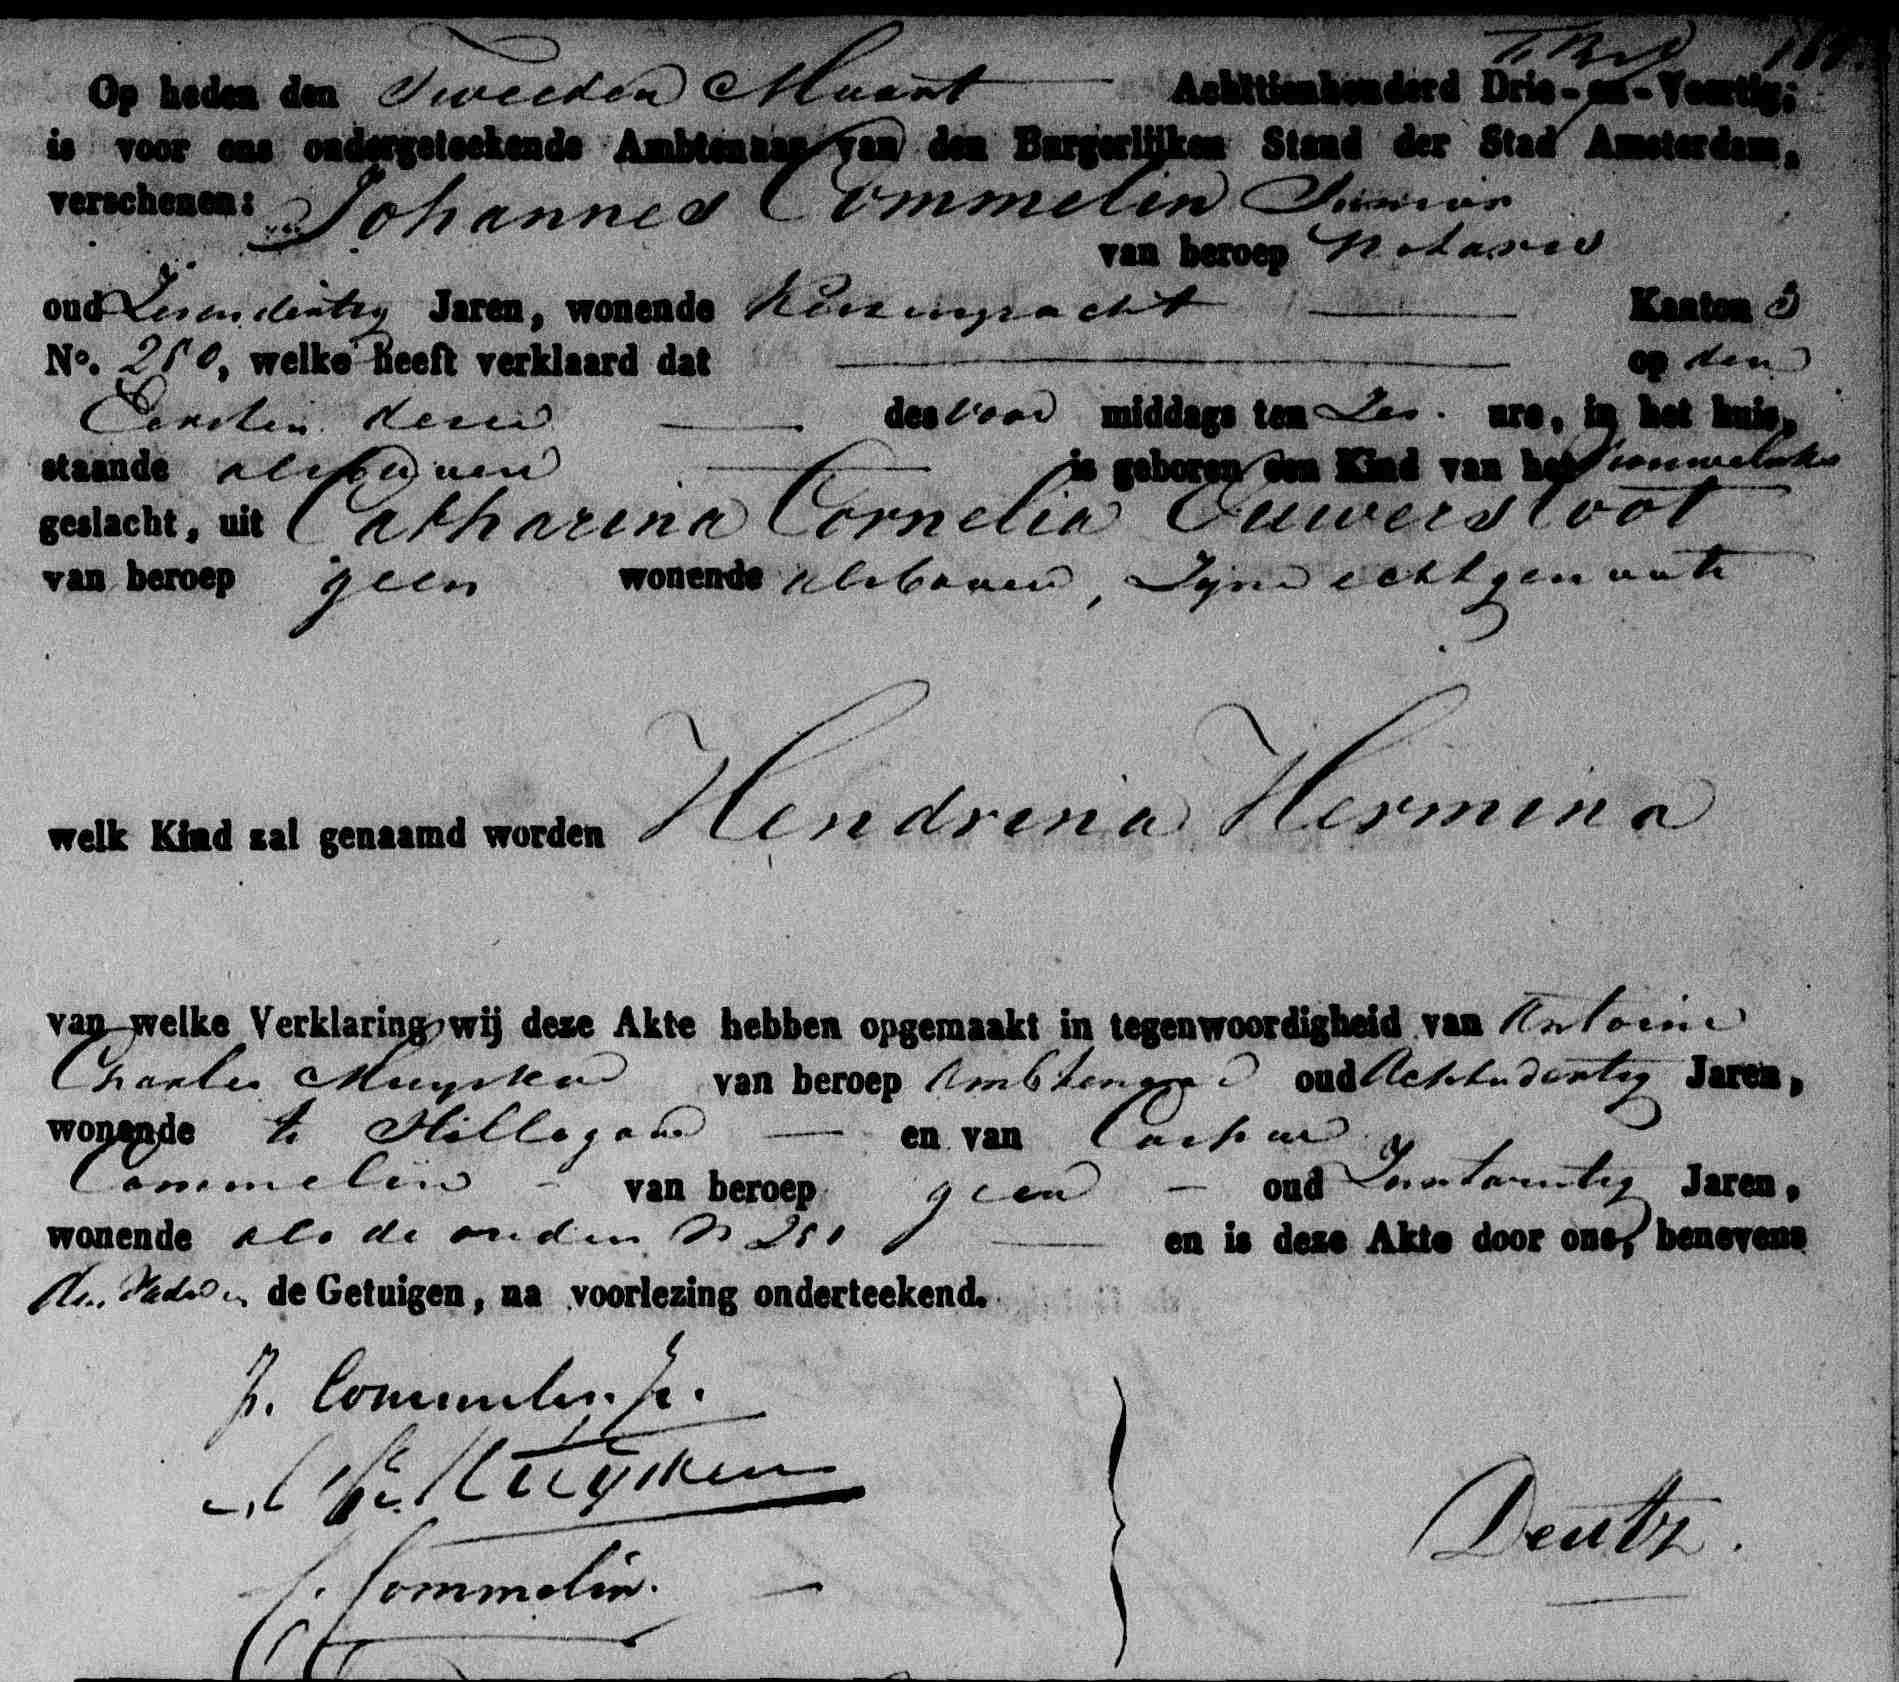 Op heden den Tweeden Maart Achttienhonderd Drie-en-Veertig;
is voor ons ondergeteekende Ambtenaar van den Burgerlijken Stand der Stad Amsterdam,
verschenen: Johannes Commelin Junior
van beroep Notaris
oud Zesendertig Jaren, wonende Keizersgracht Kanton 3
No. 250, welke heeft verklaard dat op den
Eersten dezer des voor middags ten Zes ure, in het huis,
staande alsboven is geboren een Kind van het Vrouwelijke
geslacht, uit Catharina Cornelia Ouwersloot
van beroep geen wonende alsboven, Zyne echtgenoote
welk Kind zal genaamd worden Hendrina Hermina
van welke Verklaring wij deze Akte hebben opgemaakt in tegenwoordigheid van Antoine
Charles Muysken van beroep Ambtenaar oud Achtendertig Jaren,
wonende te Hillegom en van Caspar
Commelin van beroep geen oud Jaren,
wonende als de ouders N 251 en is deze Akte door ons, benevens
den Vader en de Getuigen, na voorlezing onderteekend.
J. Commelin Jr.
A. Ch. Muysken
C. Commelin.
Deutz.